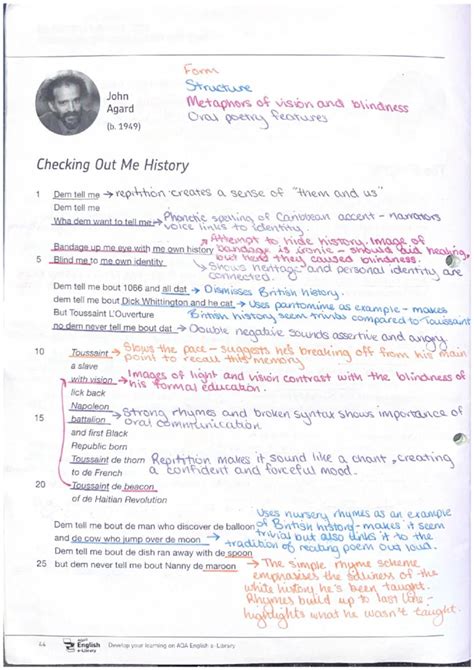 Form
Structure
Metaphors of vision and blindness
Oral poetry features
John
Agard
(b. 1949)
Checking Out Me History
1 Dem tell me → repitition creates a sense of "them and us"
Dem tell me
Wha dem want to tell me → Phonetic spelling of Caribbean accent - narrators
voice links to identity.
Attempt to hide history. Image of
Bandage up me eye with me own history bandage is ironic - should aid healing,
but here they caused blindness.
5 Blind me to me own identity
→ Shows heritage and personal identity are
connected.
Dem tell me bout 1066 and all dat → Dismisses British history.
dem tell me bout Dick Whittington and he cat → Uses pantomime as example - makes
But Toussaint L'Ouverture British history seem trivial compared to Toussaint
no dem never tell me bout dat → Double negative sounds assertive and angry
10 Toussaint → Slows the pace - suggests he's breaking off from his main
point to recall this memory
a slave
with vision → Images of light and vision contrast with the blindness of
his formal education.
lick back
Napoleon
15 battalion → Strong rhymes and broken syntax shows importance of
oral communication
and first Black
Republic born
Toussaint de thorn Repitition makes it sound like a chant, creating
to de French a confident and forceful mood.
20 Toussaint de beacon
of de Haitian Revolution
Uses nursery rhymes as an example
Dem tell me bout de man who discover de balloon of British history - makes it seem
and de cow who jump over de moon → trivial but also links it to the
tradition of reading poem out loud.
Dem tell me bout de dish ran away with de spoon
25 but dem never tell me bout Nanny de maroon → The simple rhyme scheme
emphasises the silliness of the
white history he's been taught.
Rhymes build up to last line -
highlights what he wasn't taught.
44 English e-Library Develop your learning on AQA English e-Library